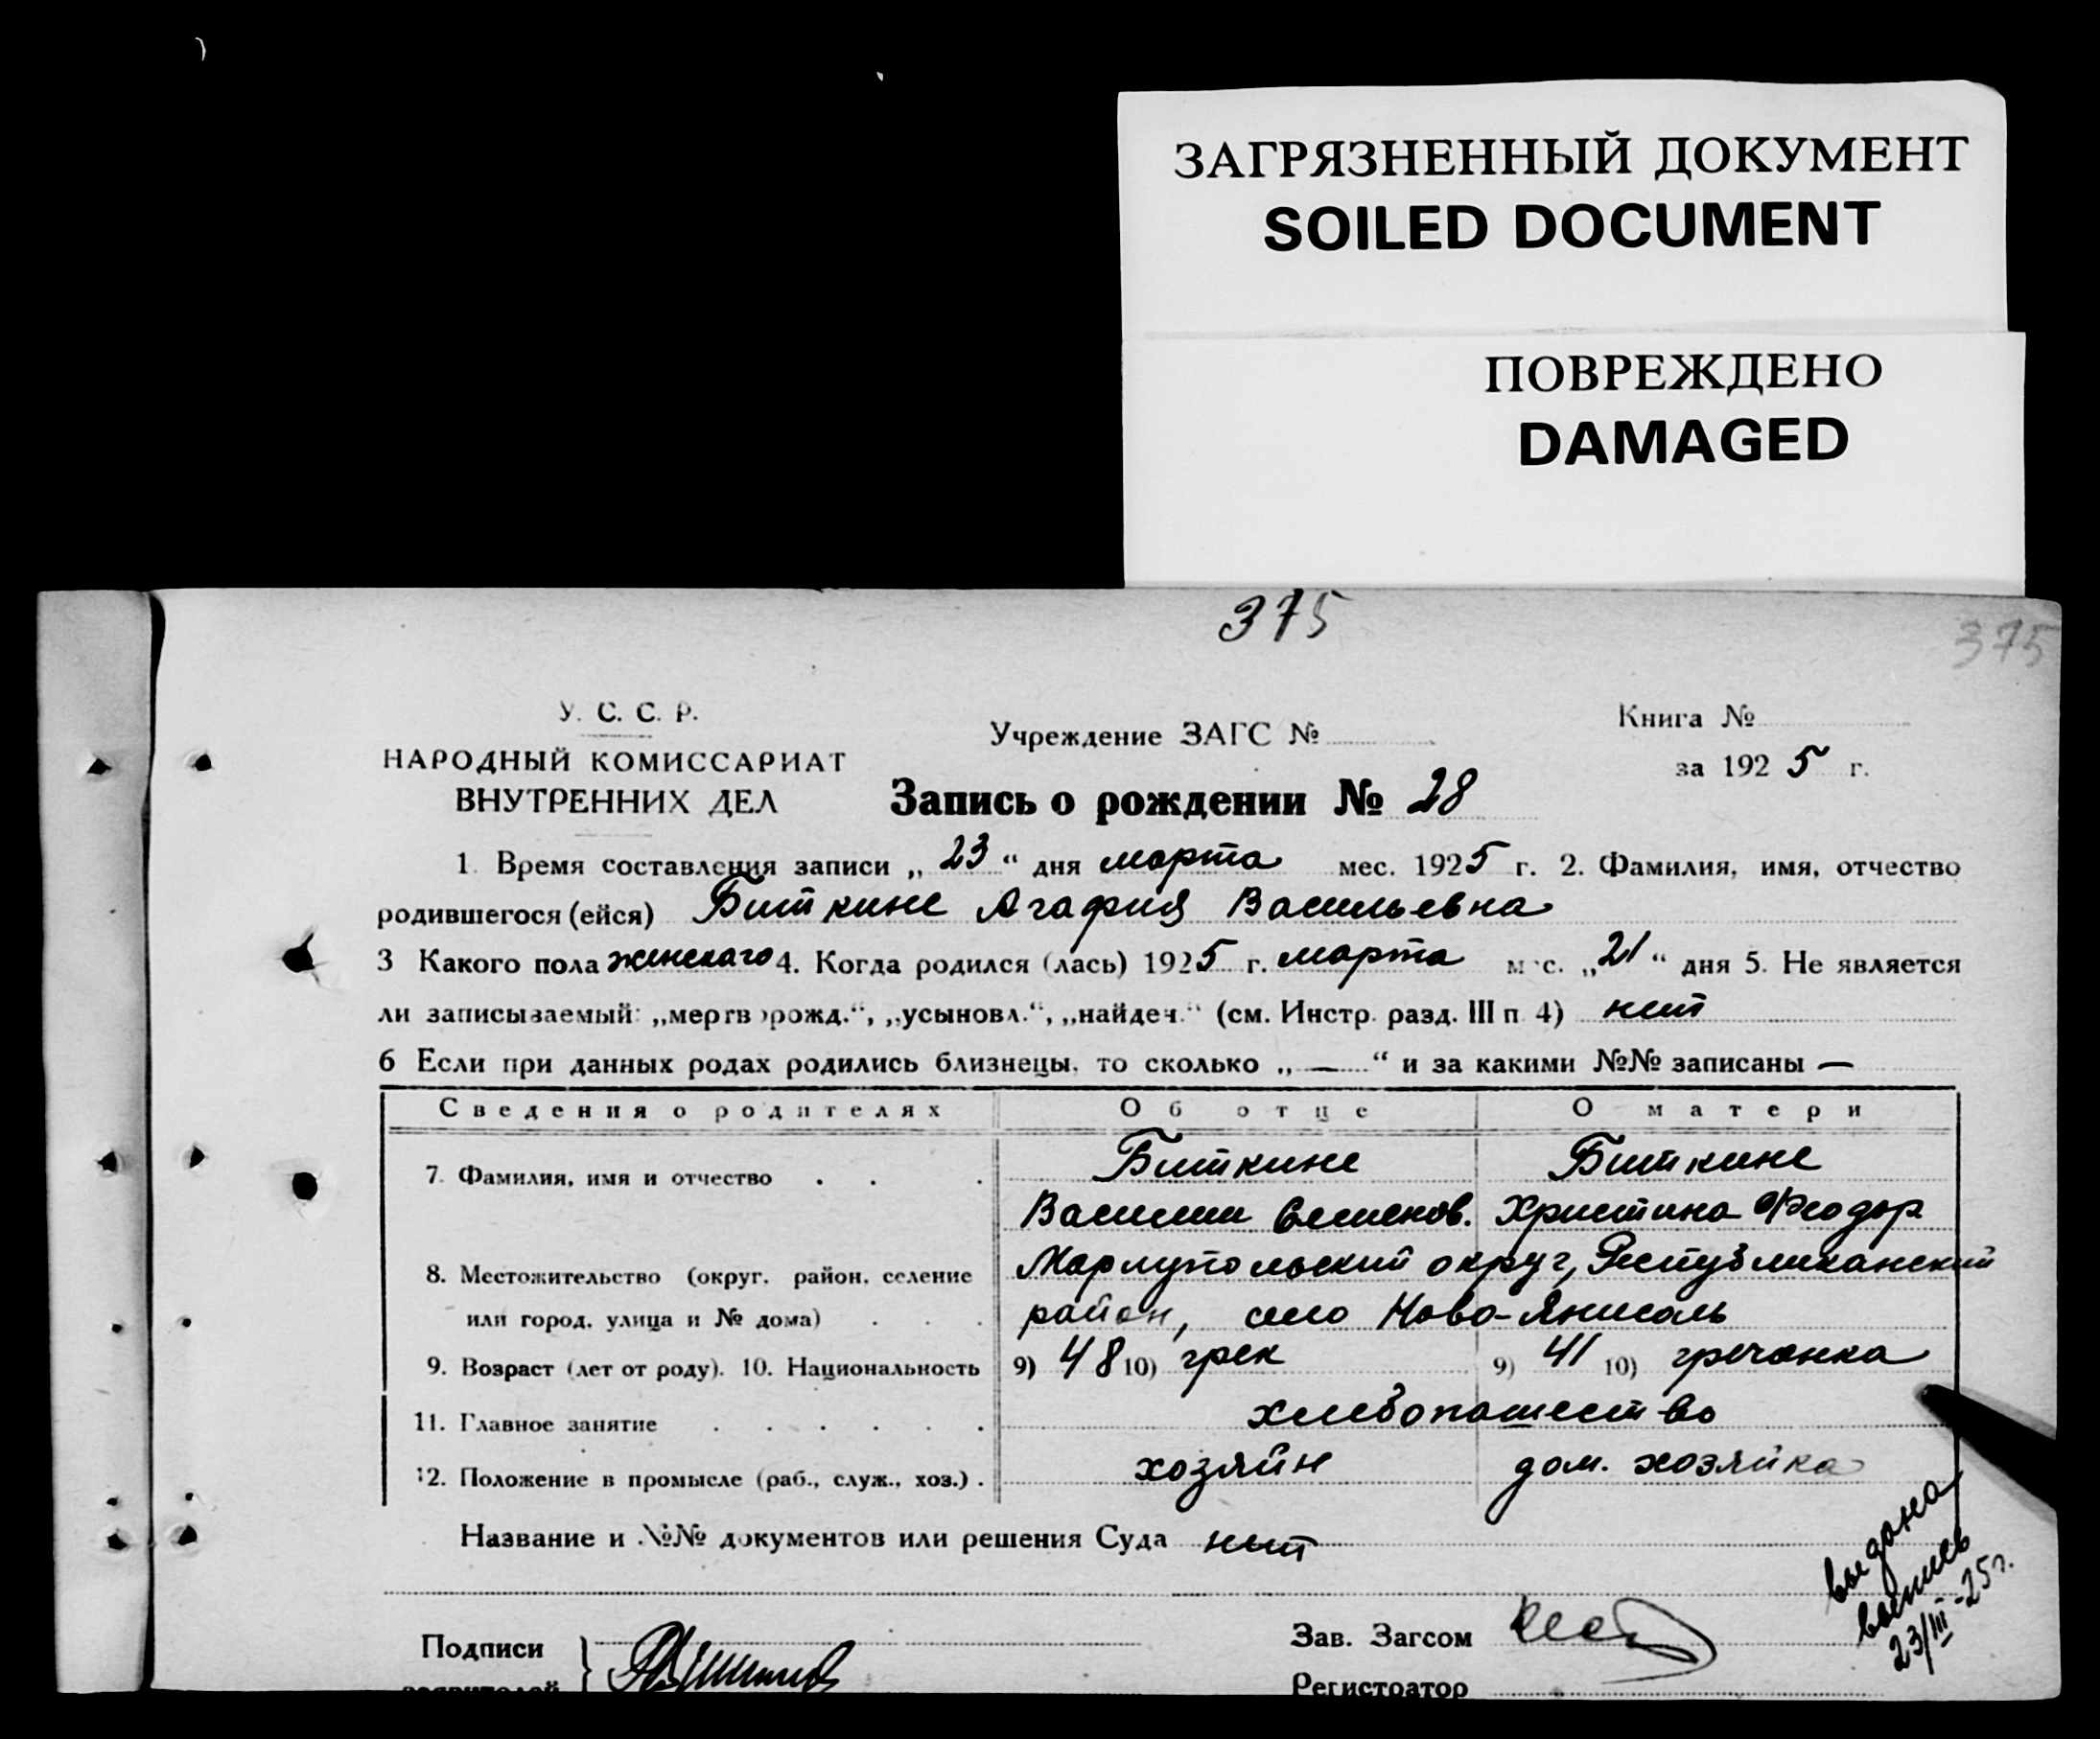 ЗАГРЯЗНЕННЫЙ ДОКУМЕНТ
SOILED DOCUMENT
ПОВРЕЖДЕНО
DAMAGED
375
375
У. С. С. Р.
НАРОДНЫЙ КОМИССАРИАТ
ВНУТРЕННИХ ДЕЛ
Учреждение ЗАГС №
Книга №
за 1925 г.
Запись о рождении № 28
1. Время составления записи „23“ дня марта мес. 1925 г. 2. Фамилия, имя, отчество
родившегося (ейся) Биткине Агафия Васильевна
3 Какого пола женскаго 4. Когда родился (лась) 1925 г. марта мес. „21“ дня 5. Не является
ли записываемый: „мертворожд.“, „усыновл.“, „найден.“ (см. Инстр. разд. III п 4) нет
6 Если при данных родах родились близнецы, то сколько „—“ и за какими №№ записаны —
Сведения о родителях Об отце О матери
7. Фамилия, имя и отчество . . . Биткине Биткине
Василий Семенов. Христина Феодор
8. Местожительство (округ, район, селение Мариупольский округ, Республиканский
или город, улица и № дома) . . . район, село Ново-Янисаль
9. Возраст (лет от роду). 10. Национальность 9) 48 10) грек 9) 41 10) гречанка
11. Главное занятие . . . . . . хлебопашество
12. Положение в промысле (раб., служ., хоз.) . хозяйн дом. хозяйка
Название и №№ документов или решения Суда нет
выдана
выпись
23/III-25 г.
Подписи
заявителей }
Зав. Загсом
Регистратор